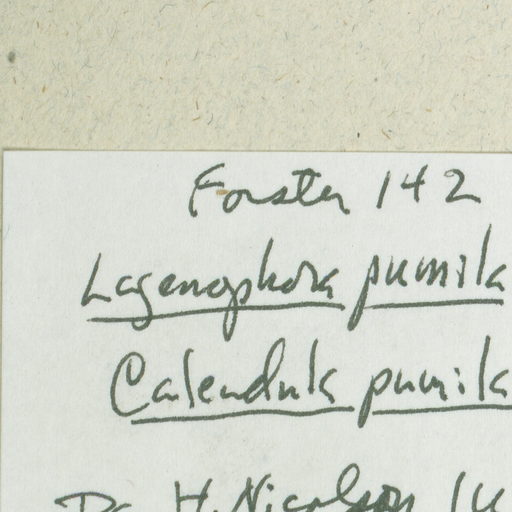 Forster 142
Lagenophora pumila
Calendula pumila
Dr H. Nicolson